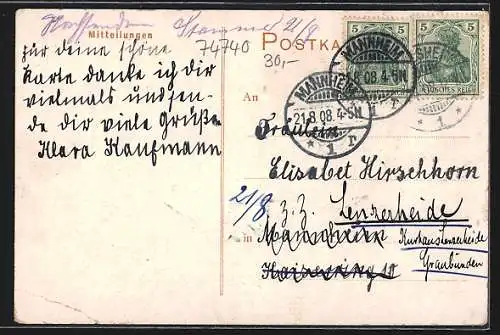 Hoffenden Stammel 21/8
Mitteilungen
74740
30,-
für deine schöne
Karte danke ich dir
vielmals und sen-
de dir viele Grüße
Klara Kaufmann
POSTKA
5 5
5 5
DEUTSCHES REICH
MANNHEIM
8.08.4-5N
MANNHEIM
21.8.08.4-5N
* 1 r
* 1
An
Fräulein
Elisabet Hirschhorn
21/8
z. Z. Lenzerheide
in Mannheim Kurhaus Lenzerheide
Kaiserring 10 Graubünden
in